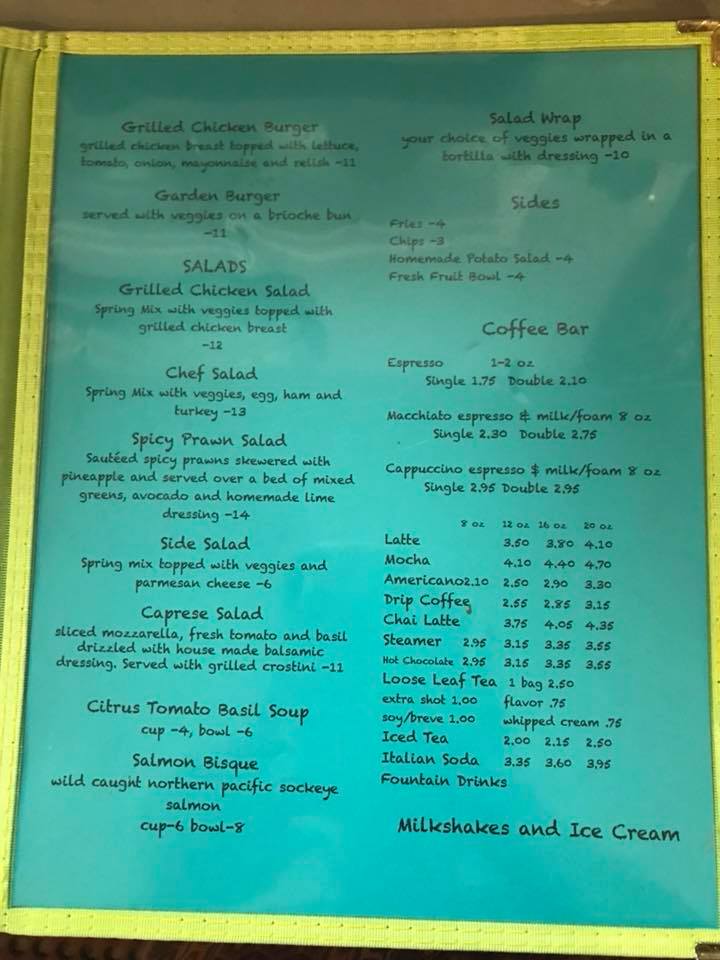 Grilled Chicken Burger
grilled chicken breast topped with lettuce,
tomato, onion, mayonnaise and relish -11
Garden Burger
served with veggies on a brioche bun
-11
SALADS
Grilled Chicken Salad
Spring Mix with veggies topped with
grilled chicken breast
-12
Chef Salad
Spring Mix with veggies, egg, ham and
turkey -13
Spicy Prawn Salad
Sautéed spicy prawns skewered with
pineapple and served over a bed of mixed
greens, avocado and homemade lime
dressing -14
Side Salad
Spring mix topped with veggies and
parmesan cheese -6
Caprese Salad
sliced mozzarella, fresh tomato and basil
drizzled with house made balsamic
dressing. Served with grilled crostini -11
Citrus Tomato Basil Soup
cup -4, bowl -6
Salmon Bisque
wild caught northern pacific sockeye
salmon
cup-6 bowl-8
Salad Wrap
your choice of veggies wrapped in a
tortilla with dressing -10
Sides
Fries -4
Chips -3
Homemade Potato Salad -4
Fresh Fruit Bowl -4
Coffee Bar
Espresso 1-2 oz
Single 1.75 Double 2.10
Macchiato espresso & milk/foam 8 oz
Single 2.30 Double 2.75
Cappuccino espresso $ milk/foam 8 oz
Single 2.95 Double 2.95
8 oz 12 oz 16 oz 20 oz
Latte 3.50 3.80 4.10
Mocha 4.10 4.40 4.70
Americano2.10 2.50 2.90 3.30
Drip Coffee 2.55 2.85 3.15
Chai Latte 3.75 4.05 4.35
Steamer 2.95 3.15 3.35 3.55
Hot Chocolate 2.95 3.15 3.35 3.55
Loose Leaf Tea 1 bag 2.50
extra shot 1.00 flavor .75
soy/breve 1.00 whipped cream .75
Iced Tea 2.00 2.15 2.50
Italian Soda 3.35 3.60 3.95
Fountain Drinks
Milkshakes and Ice Cream